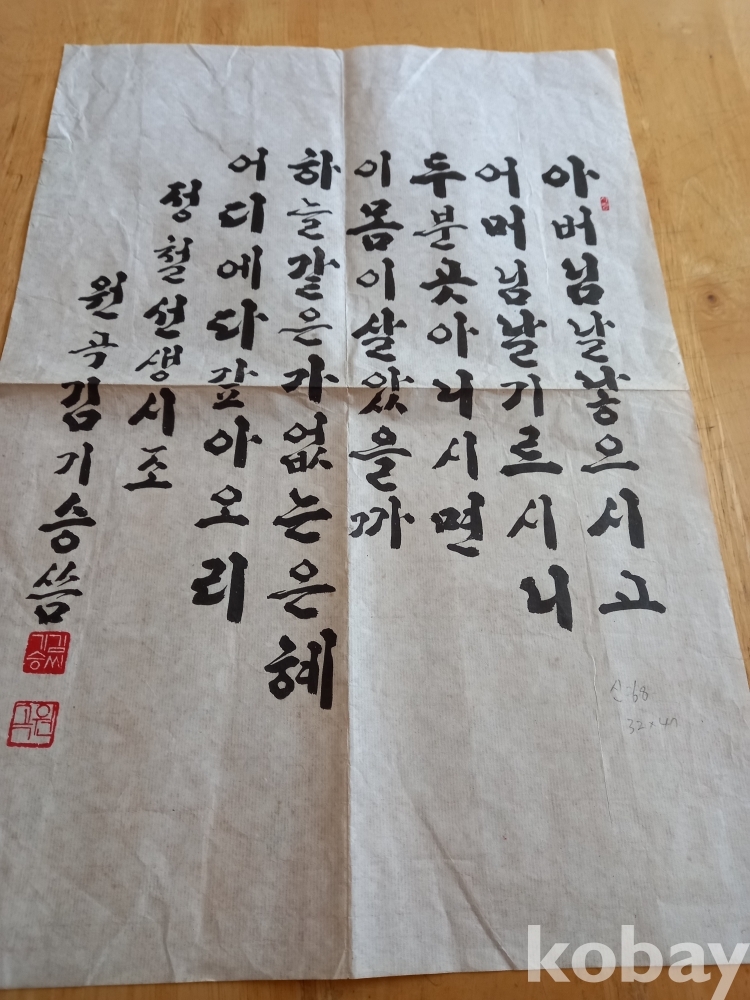 아버님날낳으시고
어머님날기르시니
두분곳아니시면
이몸이살았을까
하늘같은가없는은혜
어디에다갚아오리
정철선생시조
원곡김기승씀
김씨
기승
원곡
신:68
32×47
kobay